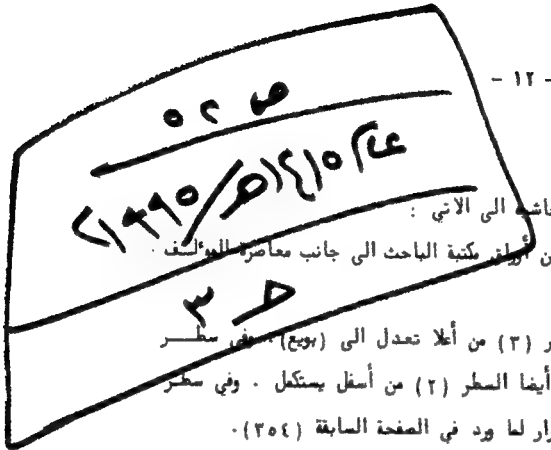 - ١٢ -
ص ٢٥
عام ١٤١٥هـ/١٩٩٥م
ط ٣
الى الاتي :
من أوراق مكتبة الباحث الى جانب معاصرة المؤلف
(٣) من أعلا تعدل الى (بويع). وفي سطر
أيضا السطر (٢) من أسفل يستكمل . وفي سطر
لما ورد في الصفحة السابقة (٣٥٤).